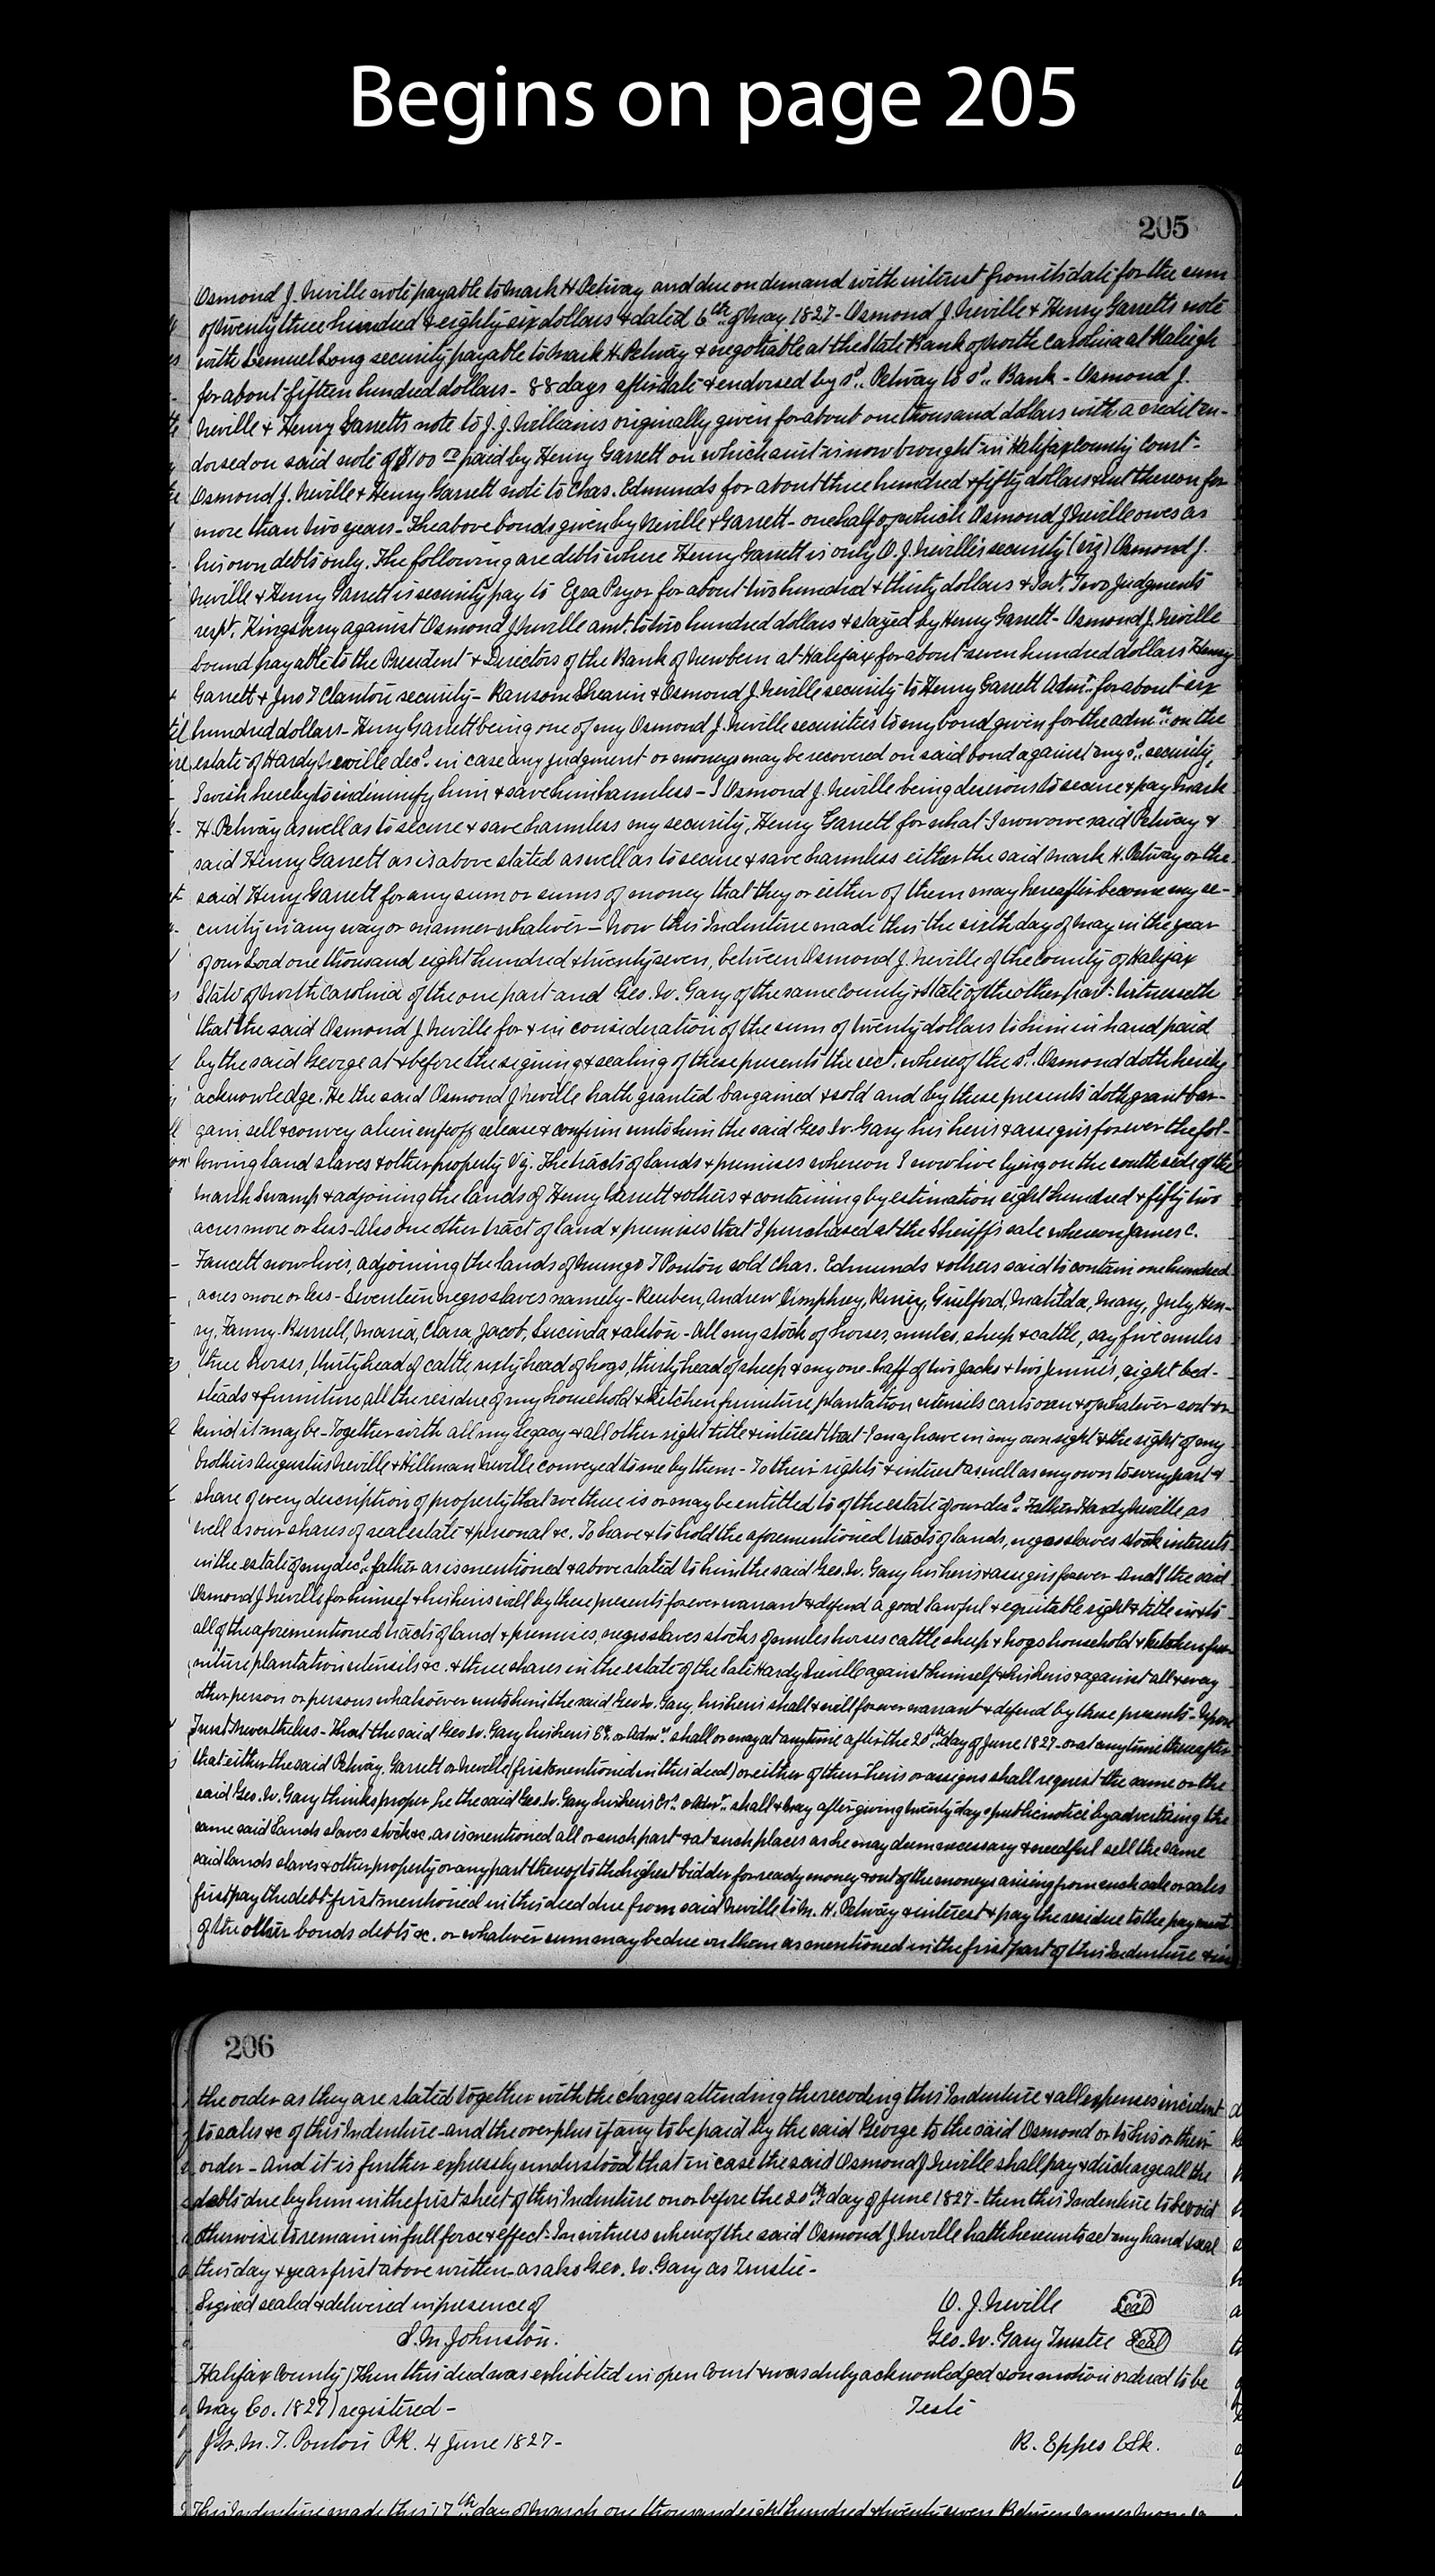 Begins on page 205
205
Osmond J. Neville note payable to Mark H Petway and due on demand with interest from its date for the sum
of twenty three hundred & eighty six dollars & dated 6th of May 1827 - Osmond J. Neville & Henry Garretts note
with Lemuel Long security payable to Mark H. Petway & negotiable at the State Bank of North Carolina at Raleigh
for about fifteen hundred dollars - 88 days after date & endorsed by sd. Petway to sd. Bank - Osmond J.
Neville & Henry Garretts note to J. J. Williams originally given for about one thousand dollars with a credit en-
dorsed on said note of $100 paid by Henry Garrett on which suit is now brought in Halifax County Court -
Osmond J. Neville & Henry Garrett note to Chas. Edmunds for about three hundred & fifty dollars & int thereon for
more than two years - The above bonds given by Neville & Garrett - one half of which Osmond J Neville owes as
his own debts only. The following are debts where Henry Garrett is only O. J. Neville's security (viz) Osmond J.
Neville & Henry Garrett is security pay to Ezra Pryor for about two hundred & thirty dollars & Int. Two Judgments
Kingsbery against Osmond J Neville amt. to two hundred dollars & stayed by Henry Garrett - Osmond J. Neville
bound payable to the President & Directors of the Bank of Newbern at Halifax for about seven hundred dollars Henry
Garrett & Jno T Clanton security - Ransom Shearin & Osmond J. Neville security to Henry Garrett Admr. for about six
hundred dollars - Henry Garrett being one of my Osmond J. Neville securities to my bond given for the admn. on the
estate of Hardy Neville decd. in case any judgment or moneys may be recovered on said bond against my sd. security,
I wish hereby to indimnify him & save him harmless - I Osmond J. Neville being desirous to secure & pay Mark
H. Petway as well as to secure & save harmless my security, Henry Garrett for what I now owe said Petway &
said Henry Garrett as is above stated as well as to secure & save harmless either the said Mark H. Petway or the
said Henry Garrett for any sum or sums of money that they or either of them may hereafter become my se-
curity in any way or manner whatever - Now this Indenture made this the sixth day of May in the year
of our Lord one thousand eight hundred & twenty seven, between Osmond J. Neville of the County of Halifax
State of North Carolina of the one part and Geo. W. Gary of the same County & State of the other part. Witnesseth
that the said Osmond J Neville for & in consideration of the sum of twenty dollars to him in hand paid
by the said George at & before the signing & sealing of these presents the rect. whereof the sd. Osmond doth hereby
acknowledge. He the said Osmond J Neville hath granted bargained & sold and by these presents doth grant bar-
gain sell & convey alien enfeoff release & confirm unto him the said Geo. W. Gary his heirs & assigns forever the fol-
lowing land slaves & other property Viz. The tracts of lands & premises whereon I now live lying on the south side of the
Marsh Swamp & adjoining the lands of Henry Garrett & others & containing by estimation eight hundred & fifty two
acres more or less - Also one other tract of land & premises that I purchased at the Sheriff's sale whereon James C.
Faucett now lives, adjoining the lands of Mungo T Ponton sold Chas. Edmunds & others said to contain one hundred
acres more or less - Seventeen negro slaves namely - Reuben, Andrew Umphrey, Guilford, Matilda, Mary, July, Hen-
ry, Fanny - Burrell, Maria, Clara, Jacob, Lucinda & Alston - All my stock of horses, mules, sheep & cattle, say five mules
three horses, thirty head of cattle, sixty head of hogs, thirty head of sheep & my one-half of two Jacks & two Jennies, eight bed-
steads & furniture, all the residue of my household & kitchen furniture, plantation utensils carts oxen & of whatever sort or
kind it may be - Together with all my legacy & all other right title & interest that I may have in my own right & the right of my
brothers Augustus Neville & Hillman Neville conveyed to me by them - To their rights & interest as well as my own to every part &
share of every description of property that we three is or may be entitled to of the estate of our decd. Father Hardy Neville as
well as our shares of real estate & personal &c. To have & to hold the aforementioned tracts of lands, negro slaves stock interests
in the estate of my decd. father as is mentioned & above stated to him the said Geo. W. Gary his heirs & assigns forever And I the said
Osmond J Neville for himself & his heirs will by these presents forever warrant & defend a good lawful & equitable right & title in & to
all of the aforementioned tracts of land & premises, negro slaves stocks of mules horses cattle sheep & hogs household & kitchen fur-
niture plantation utensils &c. & three shares in the estate of the late Hardy Neville against himself & his heirs & against all & every
other person or persons whatsoever unto him the said Geo. W. Gary, his heirs shall & will forever warrant & defend by these presents - Upon
Trust Nevertheless - That the said Geo. W. Gary his heirs Ex. or Admr. shall or may at any time after the 20th day of June 1827 - or at any time thereafter
that either the said Petway, Garrett or Neville (first mentioned in this deed) or either of their heirs or assigns shall request the same or the
said Geo. W. Gary thinks proper, he the said Geo. W. Gary his heirs Exr. or Admr. shall & may after giving twenty days public notice by advertising the
same said lands slaves stock &c. as is mentioned all or such part & at such places as he may deem necessary & needful sell the same
said lands slaves & other property or any part thereof to the highest bidder for ready money & out of the moneys arising from such sale or sales
first pay the debt first mentioned in this deed due from said Neville to M. H. Petway & interest & pay the residue to the payment
of the other bonds debts &c. or whatever sum may be due on them as mentioned in the first part of this Indenture & in
206
the order as they are stated together with the charges attending the recoding this Indenture & all expenses incident
to sales &c of this Indenture - and the overplus if any to be paid by the said George to the said Osmond or to his or their
order - And it is further expressly understood that in case the said Osmond J Neville shall pay & discharge all the
debts due by him in the frist sheet of this Indenture on or before the 20th day of June 1827 - then this Indenture to be void
otherwise to remain in full force & effect - In witness whereof the said Osmond J. Neville hath hereunto set my hand & seal
this day & year frist above written - as also Geo. W. Gary as Trustee -
Signed sealed & delivered in presence of
O. J. Neville Seal
S. M. Johnston.
Geo. W. Gary Trustee Seal
Halifax County) Then this deed was exhibited in open Court & was duly acknowledged & on motion ordered to be
May Co. 1827) registered -
Teste
M. T. Ponton P.R. 4 June 1827 -
R. Eppes Clk.
This Indenture made this 17th day of March one thousand eight hundred & twenty seven Between James